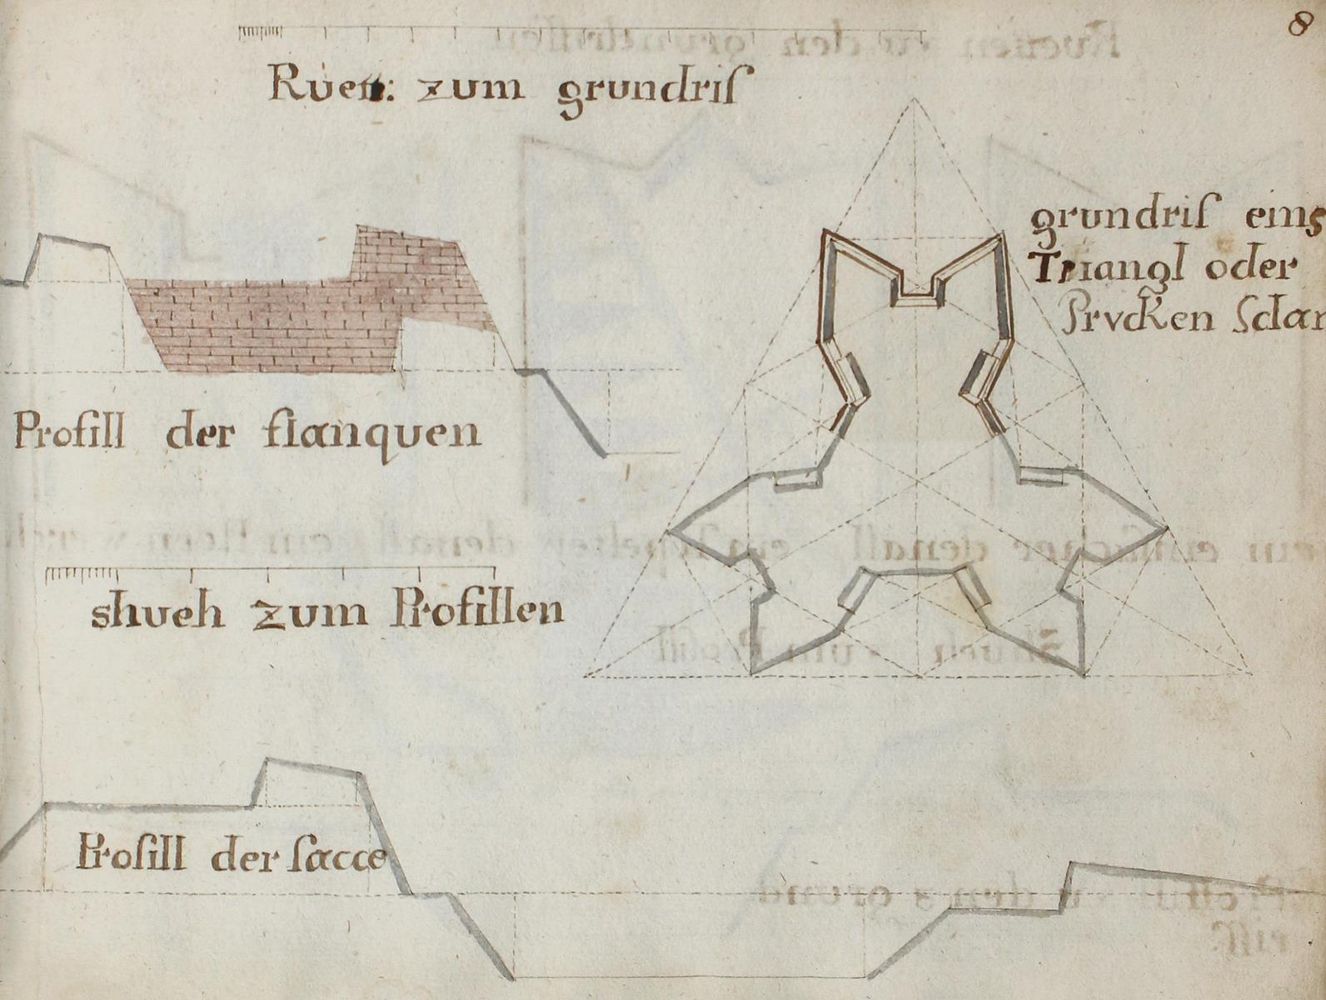 8
Ruett: zum grundriſ
grundriſ eins
Triangl oder
Profill der flanquen
shueh zum Profillen
Profill der facce